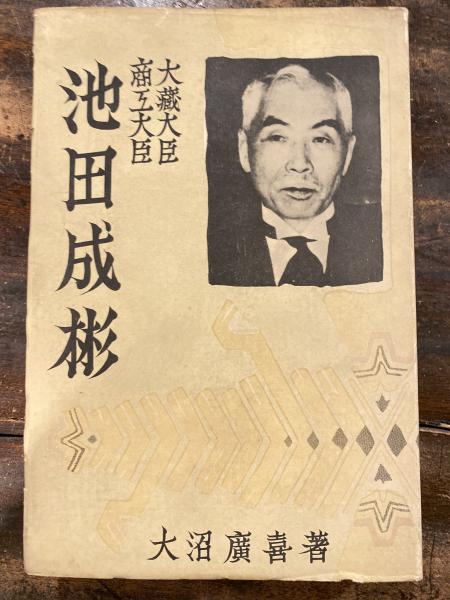 大藏大臣
商工大臣
池田成彬
大沼廣喜著